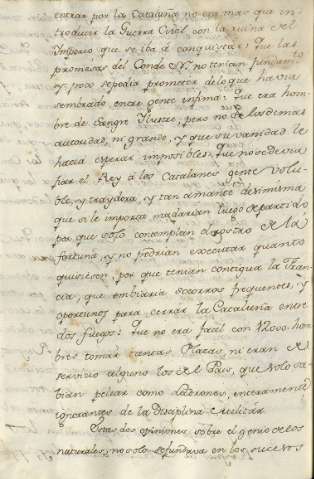 entrar por la Cataluña no era mas que in-
troducir la Guerra Civil con la ruina del
Imperio que se iba à conquistar: que las
promesas del Conde N. no tenian fundamto
y poco se podia prometer de lo que havia
sembrado entre gente infima: que era hom-
bre de sangre Ilustre, pero no de las demas
autoridad, ni grande, y que su vanidad le
hacia esperar impossibles: que no se devia
fiar el Rey à los Catalanes gente volu-
ble, y traydora, y tan amante de si misma
que si le importa mudarian luego de partido
por que solo contemplan el rostro de la
fortuna, y no podrian executar quanto
quisiesen, por que tenian contigua la Fran-
cia, que embiaria socorros frequentes, y
oportunos para, cerrar la Cataluña entre
dos fuegos: que no era facil con Nuevo hom-
bres tomar tantas Plazas, ni eran de
servicio alguno los del Pais, que solo sa-
bian pelear como Ladrones, enteramente
ignorantes de la Disciplina Militar.
Estas dos opiniones sobre el genio de los
naturales, no solo se fundava en los sucesos